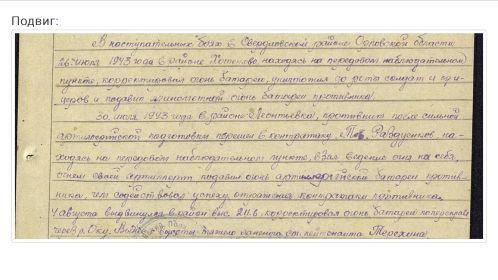 Подвиг:
В наступательных боях в Свердловском районе Орловской области
26 июля 1943 года в районе Хотетово находясь на передовом наблюдательном
пункте, корректировал огонь батареи, уничтожил до рота солдат и офи-
церов и подавил минометной огонь батареи противника.
30 июля 1943 года в районе Леонтьевка, противник после сильной
артиллерийской подготовки перешел в контратаку. на-
ходясь на передовом наблюдательном пункте, взял ведение огня на себя,
огнем своей подавил огонь артиллерийской батареи против-
ника, чем содействовал успеху отражения контратаки противника.
4 августа выдвинулся в район выс. корректировал огонь батареи по переправе
через р. Оку. тяжело раненого ст. лейтенанта Терехина